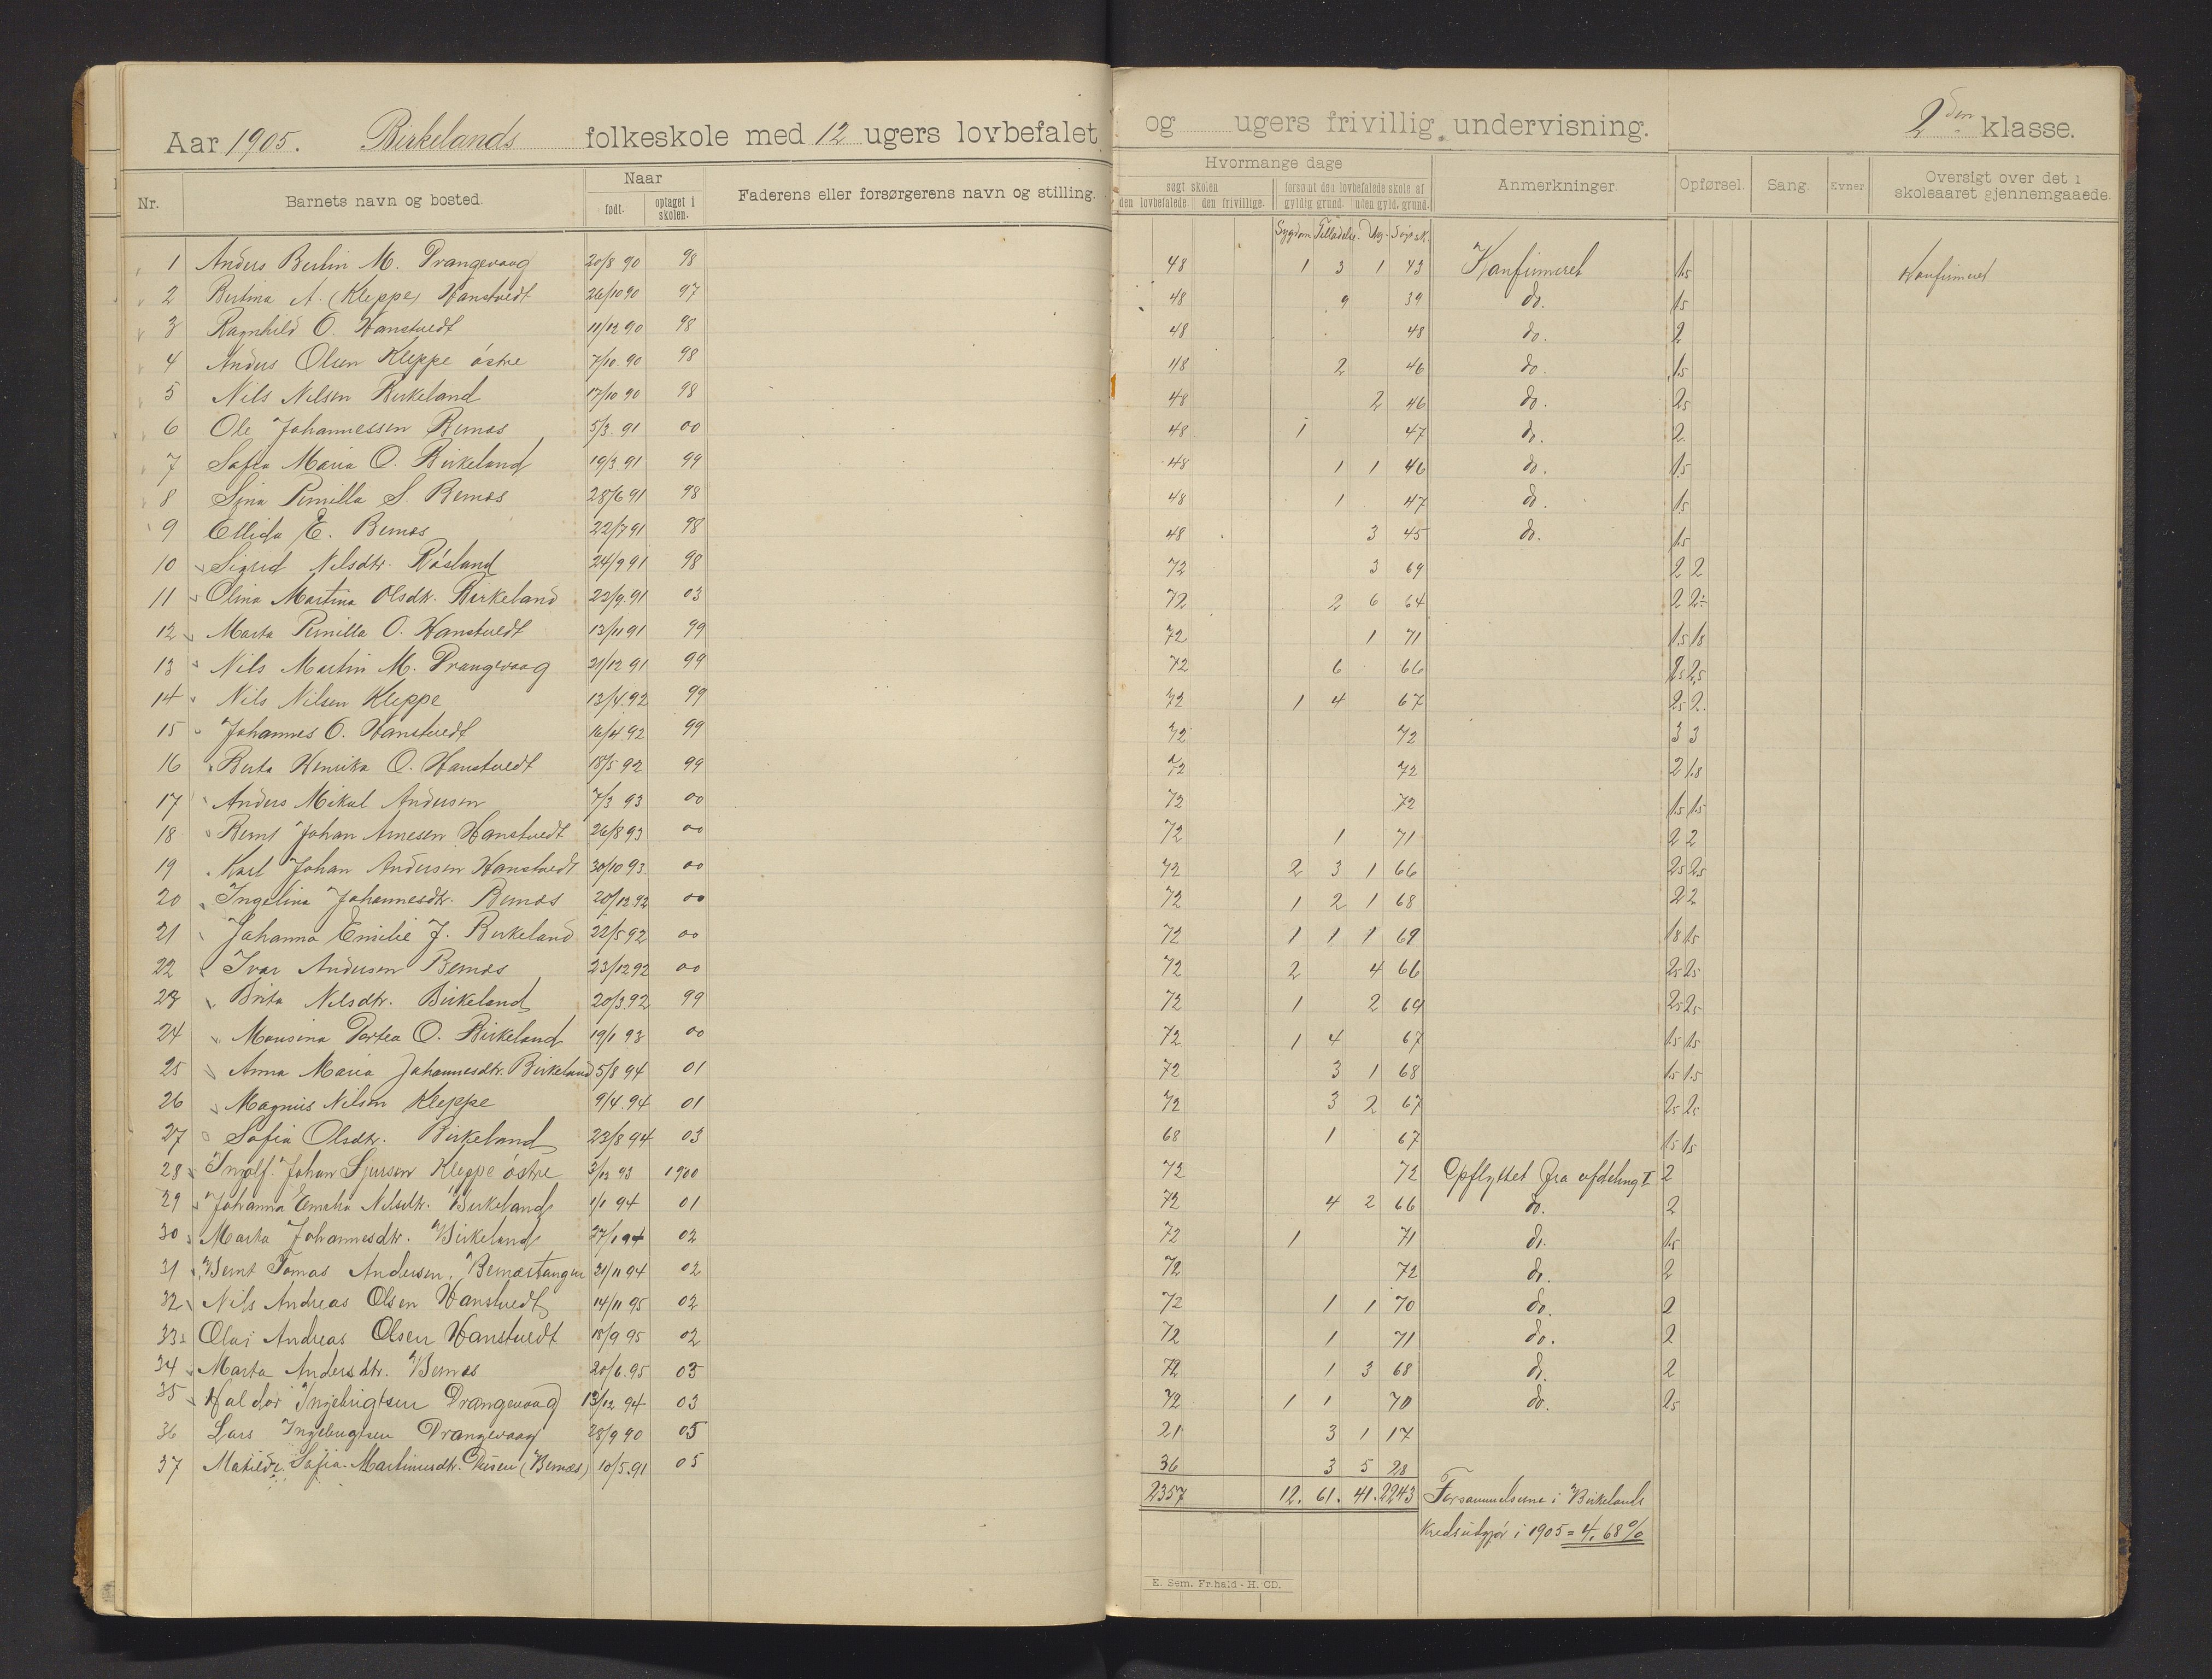 Aar 1905. Birkelands folkeskole med 12 ugers lovbefalet og ugers frivillig undervisning. 2den klasse.
Nr. Barnets navn og bosted. Naar født. optaget i skolen. Faderens eller forsørgerens navn og stilling. Hvormange dage søgt skolen den lovbefalede. den frivillige. forsømt den lovbefalede skole af gyldig grund. uden gyld. grund. Anmerkninger. Opførsel. Sang. Evner Oversigt over det i skoleaaret gjennemgaaede.
Sygdom Tilladelse. Ug. Søgt sk.
1 Anders Bertin M. Drangevaag 20/8 90 98 48 1 3 1 43 Konfirmeret 1.5 Konfirmeret
2 Bertina A. (Kleppe) Hanstvedt 26/10 90 97 48 9 39 do. 1.5
3 Ragnhild O. Hanstvedt 11/12 90 98 48 48 do. 2
4 Anders Olsen Kleppe østre 7/10. 90 98 48 2 46 do. 1.5
5 Nils Nilsen Birkeland 17/10 90 98 48 2 46 do. 2.5
6 Ole Johannessen Bemæs 5/3. 91 00 48 1 47 do. 2
7 Sofia Maria O. Birkeland 19/3. 91 99 48 1 1 46 do. 1.5
8 Sina Pernilla S. Bemæs 28/6 91 98 48 1 47 do. 1.5
9 Ellida E. Bemæs 22/7 91 98 48 3 45 do. 1.5
10 Sigrid Nilsdtr. Røsland 24/9 91 98 72 3 69 2 2
11 Olina Martina Olsdtr. Birkeland 22/9. 91 03 72 2 6 64 2 2÷
12 Marta Pernilla O. Hanstvedt 13/11 91 99 72 1 71 1.5 1.8
13 Nils Martin M. Drangevaag 21/12 91 99 72 6 66 2.5 2.5
14 Nils Nilsen Kleppe 13/4. 92 99 72 1 4 67 2.5 2.
15 Johannes O. Hanstvedt 16/4 92 99 72 72 3 3
16 Berta Henrika O. Hanstvedt 18/5 92 99 72 72 2 1.8
17 Anders Mikal Andersen 7/3 93 00 72 72 1.5 1.5
18 Bernt Johan Arnesen Hanstvedt 26/8 93 00 72 1 71 2 2
19 Karl Johan Andersen Hanstvedt 30/10 93. 00 72 2 3 1 66 2.5 2.5
20 Ingelina Johannesdtr. Bemæs 20/12. 92 00 72 1 2 1 68 2 2
21 Johanna Emilie J. Birkeland 22/5 92 00 72 1 1 1 69 1.8 1.5
22 Ivar Andersen Bemæs 23/12 92 00 72 2 4 66 2.5 2.5
23 Brita Nilsdtr. Birkeland 20/3. 92 99 72 1 2 69 2.5 2.5
24 Monsina Dortea O. Birkeland 19/1 93 00 72 1 4 67 1.5 1.5
25 Anna Maria Johannesdtr. Birkeland 5/8 94 01 72 3 1 68 1.5 1.5
26 Magnus Nilsen Kleppe 9/4. 94 01 72 3 2 67 2.5 2.5
27 Sofia Olsdtr. Birkeland 23/8 94 03 68 1 67 1.5 1.5
28 Ingolf Johan Sjursen Kleppe østre 3/12 93 1900 72 72 Opflyttet fra afdeling I 2
29 Johanna Emelia Nilsdtr. Birkeland 1/1 94 01 72 4 2 66 do. 2
30 Marta Johannesdtr. Birkeland 27/1 94 02 72 1 71 do. 1.5
31 Bernt Tomas Andersen, Bemæstangen 21/11 94 02 72 72 do. 2
32 Nils Andreas Olsen Hanstvedt 14/11 95 02 72 1 1 70 do. 2
33 Olai Andreas Olsen Hanstvedt 18/9 95 02 72 1 71 do. 2
34 Marta Andersdtr. Bemæs 20/6. 95 03 72 1 3 68 do. 2
35 Haldor Ingebrigtsen Drangevaag 13/12 94 03 72 1 1 70 do. 2.5
36 Lars Ingebrigtsen Drangevaag 28/9 90 05 21 3 1 17
37 Matilde Sofia Martinusdtr. (Bemæs) 10/5. 91 05 36 3 5 28
2357 12. 61. 41. 2243 Forsømmelserne i Birkelands
Kreds udgjør i 1905 = 4,68%
E. Sem. Fr.hald - H. CD.